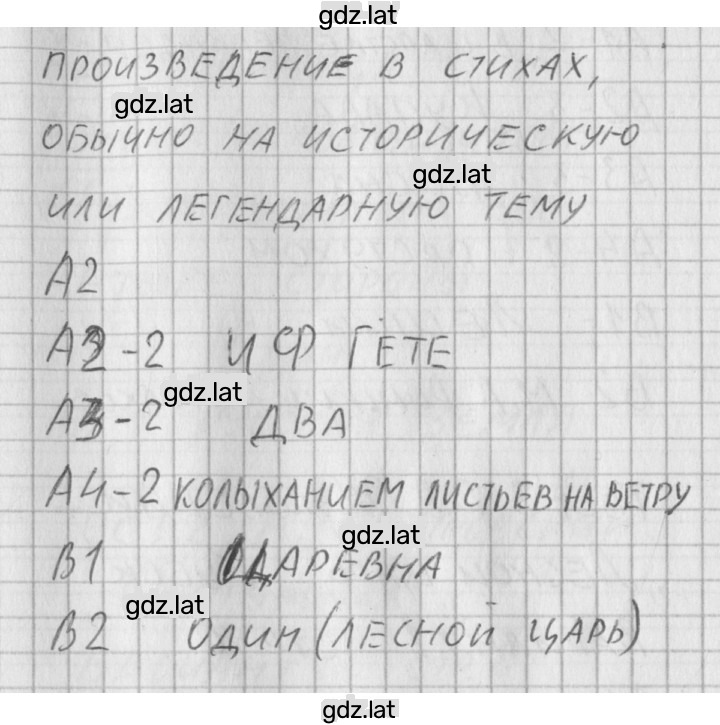 gdz.lat
ПРОИЗВЕДЕНИЕ В СТИХАХ,
gdz.lat
ОБЫЧНО НА ИСТОРИЧЕСКУЮ
gdz.lat
ИЛИ ЛЕГЕНДАРНУЮ ТЕМУ
А2
А2-2 И Ф ГЁТЕ
gdz.lat
А3-2 ДВА
А4-2 КОЛЫХАНИЕМ ЛИСТЬЕВ НА ВЕТРУ
gdz.lat
В1 ЦАРЕВНА
gdz.lat
В2 ОДИН (ЛЕСНОЙ ЦАРЬ)
gdz.lat